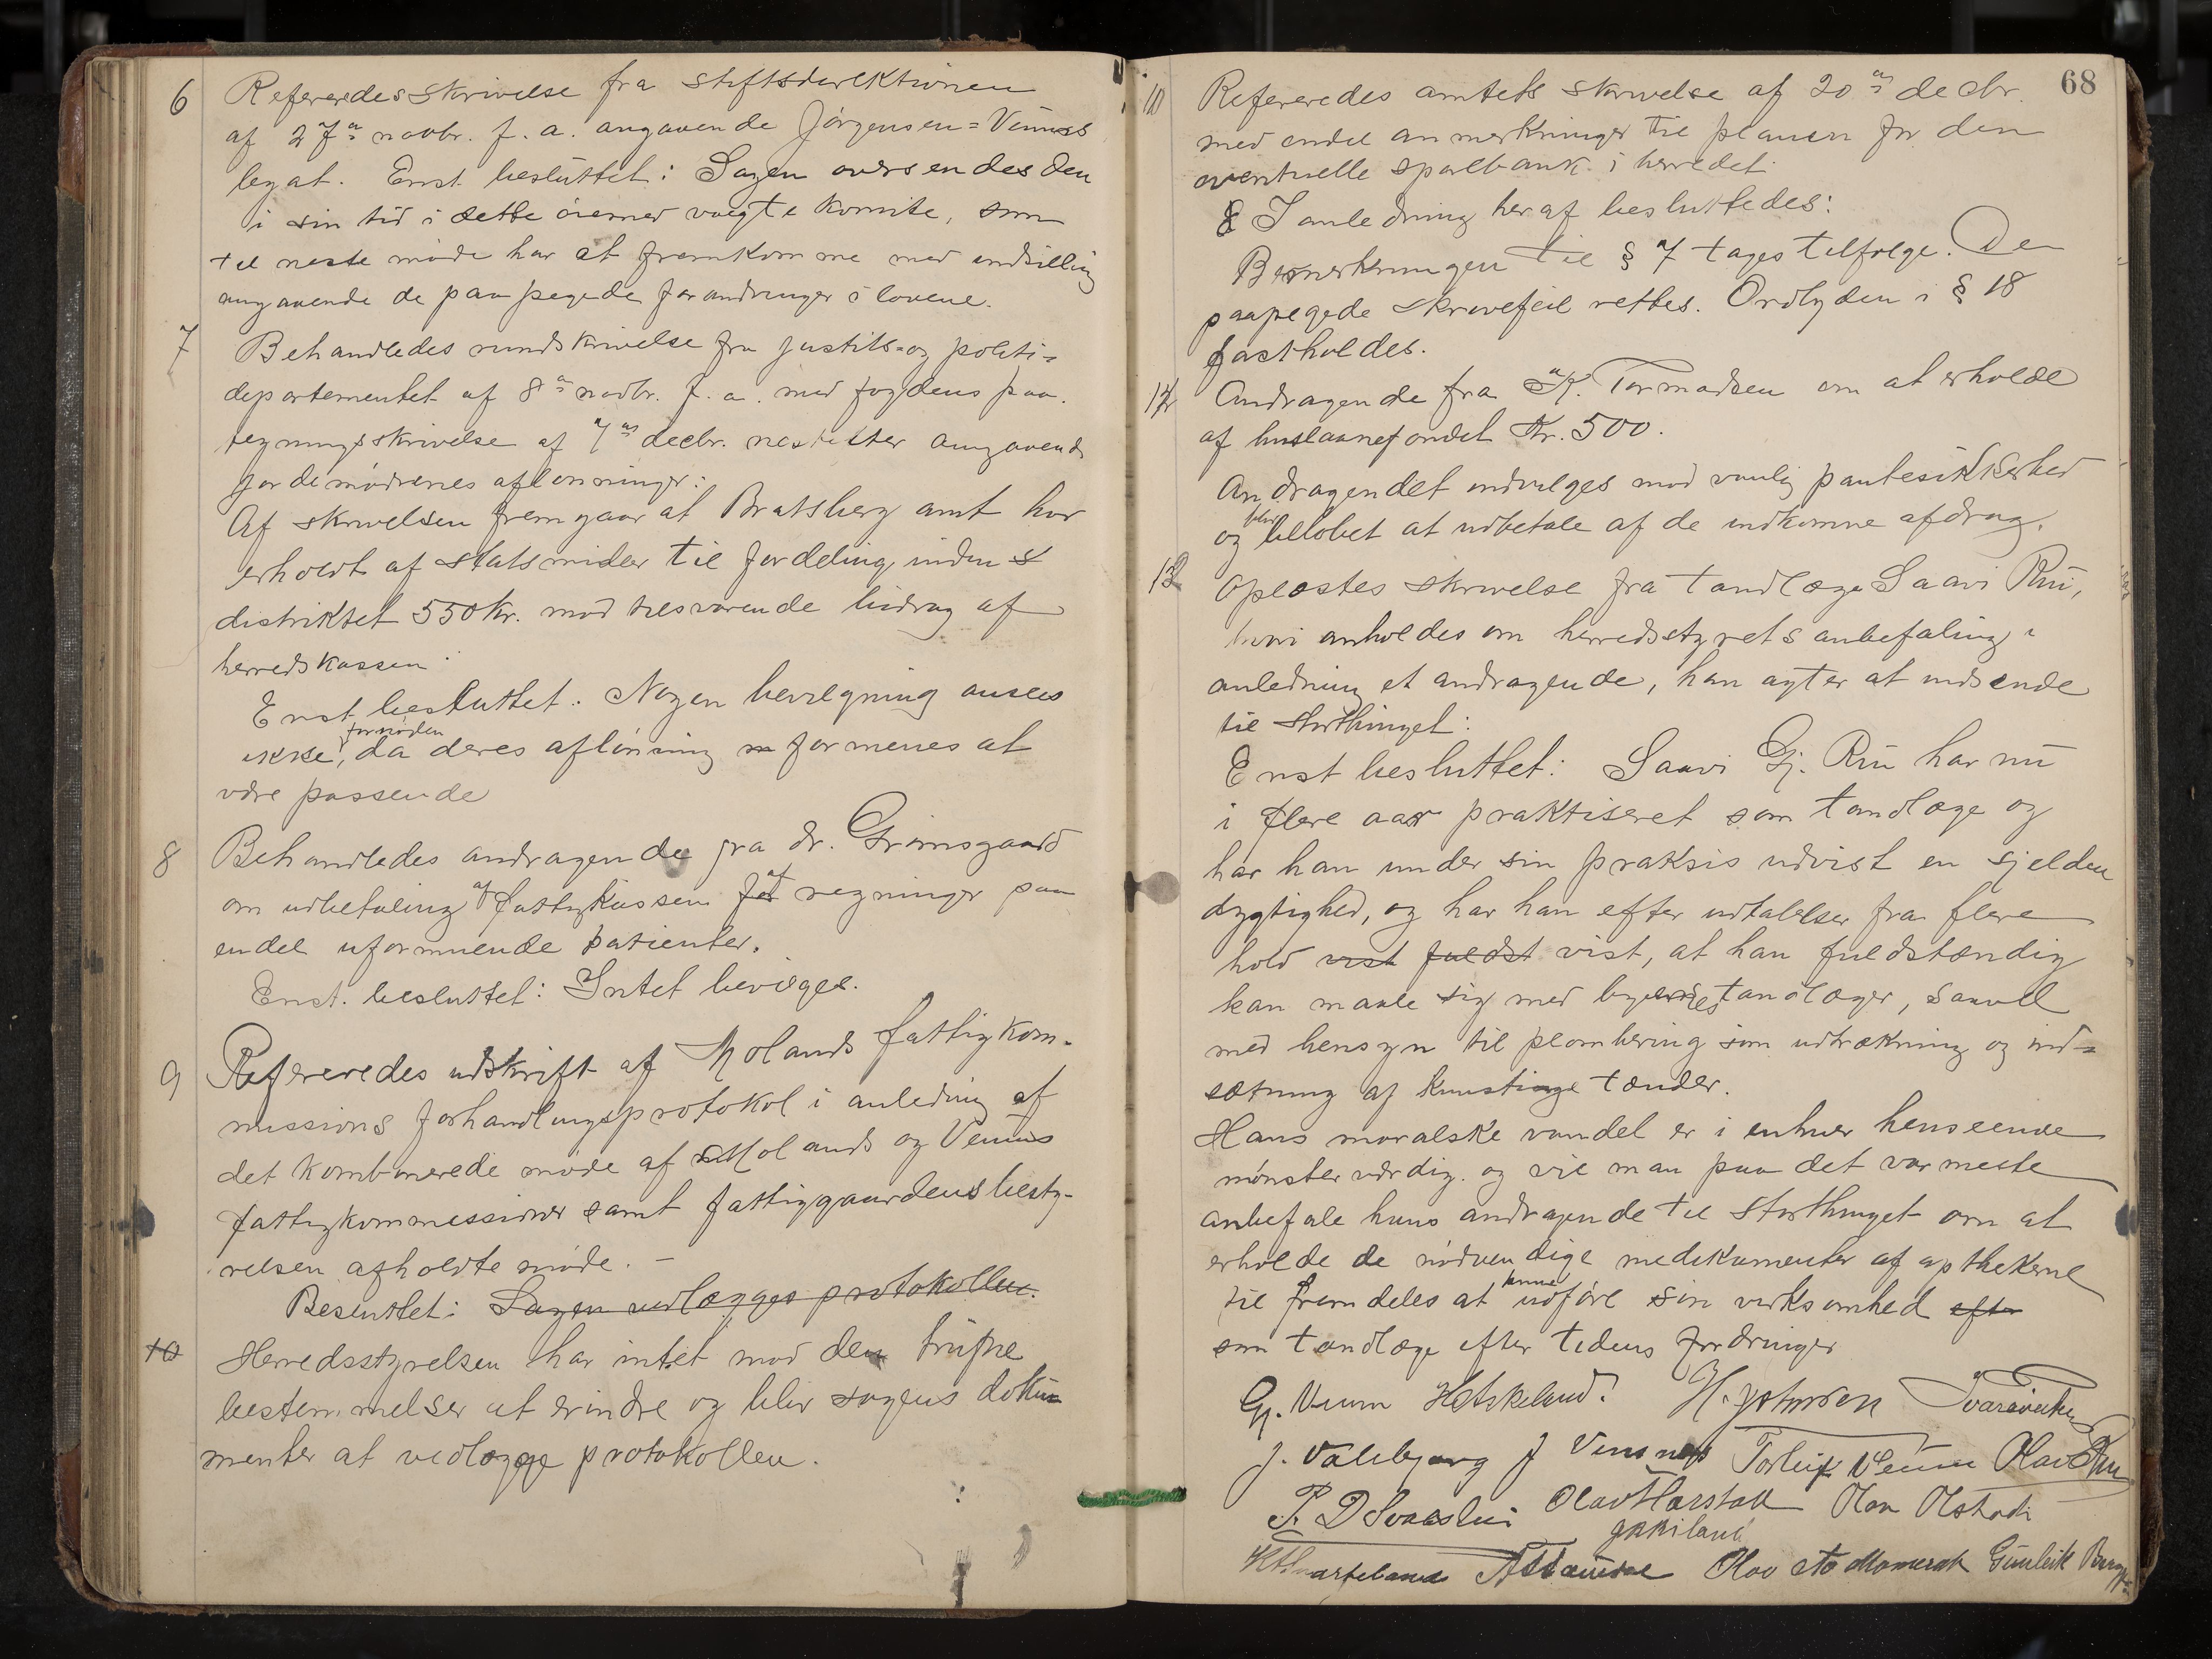 6 Refereredes skrivelse fra stiftsdirektionen
af 27de novbr. f. a. angaaende Jørgensen=Vinnes
legat. Enst. besluttet: Sagen oversendes den
i sin tid i dette øiemed valgte komite, som
til neste møde har at fremkomme med indstilling
angaaende de paapegede forandringer i lovene.
7 Behandledes rundskrivelse fra justits= og politi=
departementet af 8de novbr. f. a. med fogdens paa-
tegningsskrivelse af 7de decbr. nestefter angaaende
jordemødrenes aflønninger:
Af skrivelsen fremgaar at Bratsberg amt har
erholdt af statsmidler til fordeling inden
distriktet 550 kr. mod tilsvarende bidrag af
herredskassen.
Enst. besluttet: Nogen bevilgning ansees
ikke fornøden, da deres aflønning formenes at
være passende
8 Behandledes andragende fra dr. Grimsgaard
om udbetaling af fattigkassen af regninger paa
endel uformuende patienter.
Enst. besluttet: Intet bevilges.
9 Refereredes udskrift af Molands fattigkom-
missions forhandlingsprotokol i anledning af
det kombinerede møde af Molands og Veums
fattigkommissioner samt fattiggaardens besty-
relsen afholdte møde. –
Besluttet: Sagen vedlægges protokollen.
10 Herredsstyrelsen har intet mod den trufne
bestemmelser at erindre og blir sagens doku
menter at vedlægge protokollen.
68
10 Refereredes amtets skrivelse af 20de decbr.
med endel anmerkninger til planen for den
eventuelle sparebank i herredet.
I anledning heraf besluttedes:
Bemerkningen til § 7 tages tilfølge. De
paapegede skrivefeil rettes. Ordlyden i § 18
fastholdes.
11 Andragende fra K. Tormodsen om at erholde
af huslaanefondet Kr. 500.
Andragendet indvilges mod vanlig pantesikkerhed
og blir beløbet at udbetale af de indkomne afdrag.
12 Oplæstes skrivelse fra tandlæge Saavi Rui,
hvori anholdes om herredsstyrets anbefaling i
anledning et andragende, han agter at indsende
til storthinget:
Enst besluttet: Saavi Gj. Rui har nu
i flere aar praktiseret som tandlæge og
har han under sin praksis udvist en sjelden
dygtighed, og har han efter udtalelser fra flere
hold vist fuldst vist, at han fuldstændig
kan maale sig med byernes tandlæger, saavel
med hensyn til plombering som udtrækning og ind=
sætning af kunstige tænder.
Hans moralske vandel er i enhver henseende
mønsterværdig. og vil man paa det varmeste
anbefale hans andragende til Storthinget om at
erholde de nødvendige medikamenter af apothekerne
til fremdeles at kunne udføre sin virksomhed efter
som tandlæge efter tidens fordringer
Gj. Veum H. Johnsen
J. Valebjørg J Vinsnes Torleif Veum Olav Rui
Olav Harstad Olav Olstad